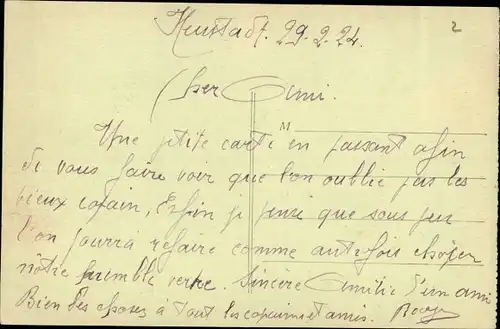 2
Neustadt. 29.2.24.
Cher Ami.
M
Une petite carte en passant afin
de vous faire voir que l'on oublie pas les
vieux copain, Enfin je pense que sous peu
l'on pourra refaire comme autrefois
nôtre humble verre. Sincère Amitié d'un ami
Bien des choses à tout les copains et amis.